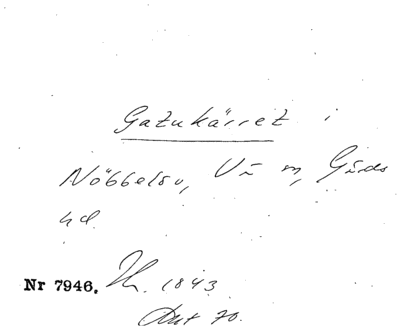 Gatukärret i
Nöbbelöv, V:a m, Gärds
hd.
Nr 7946. Th. 1843
Aut 70.